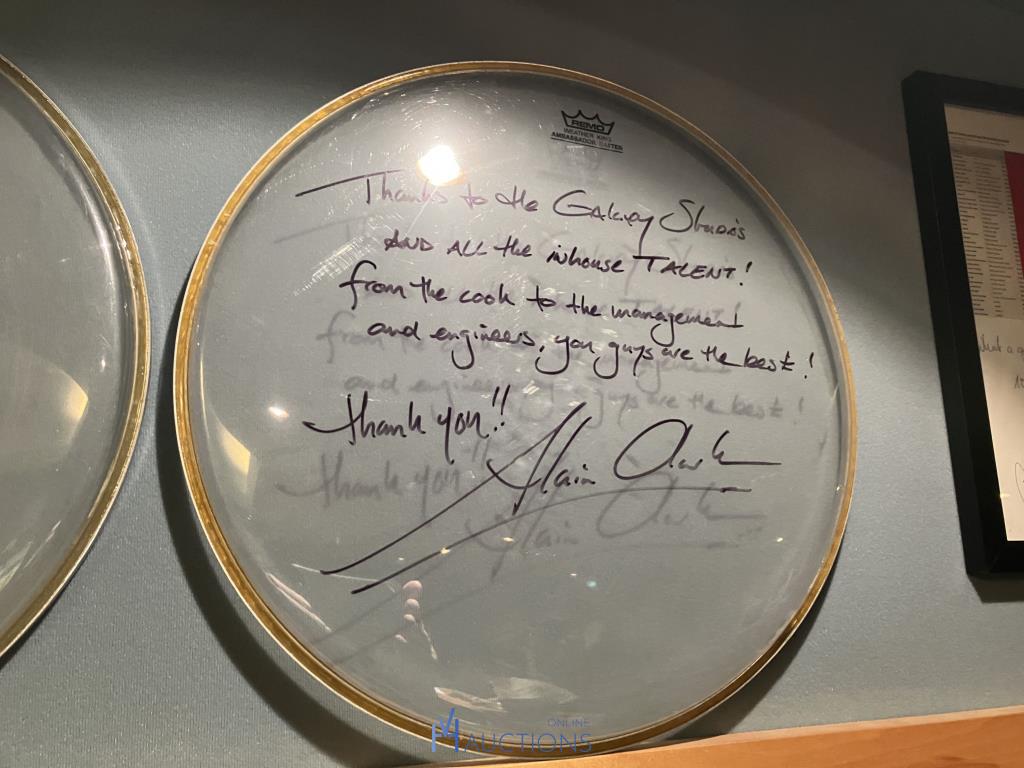 REMO
WEATHER KING
AMBASSADOR BATTER
Thanks to the Galaxy Studios
AND ALL the inhouse TALENT!
from the cook to the management
and engineers, you guys are the best!
thank you!!
Alain Clark
ONLINE
AUCTIONS